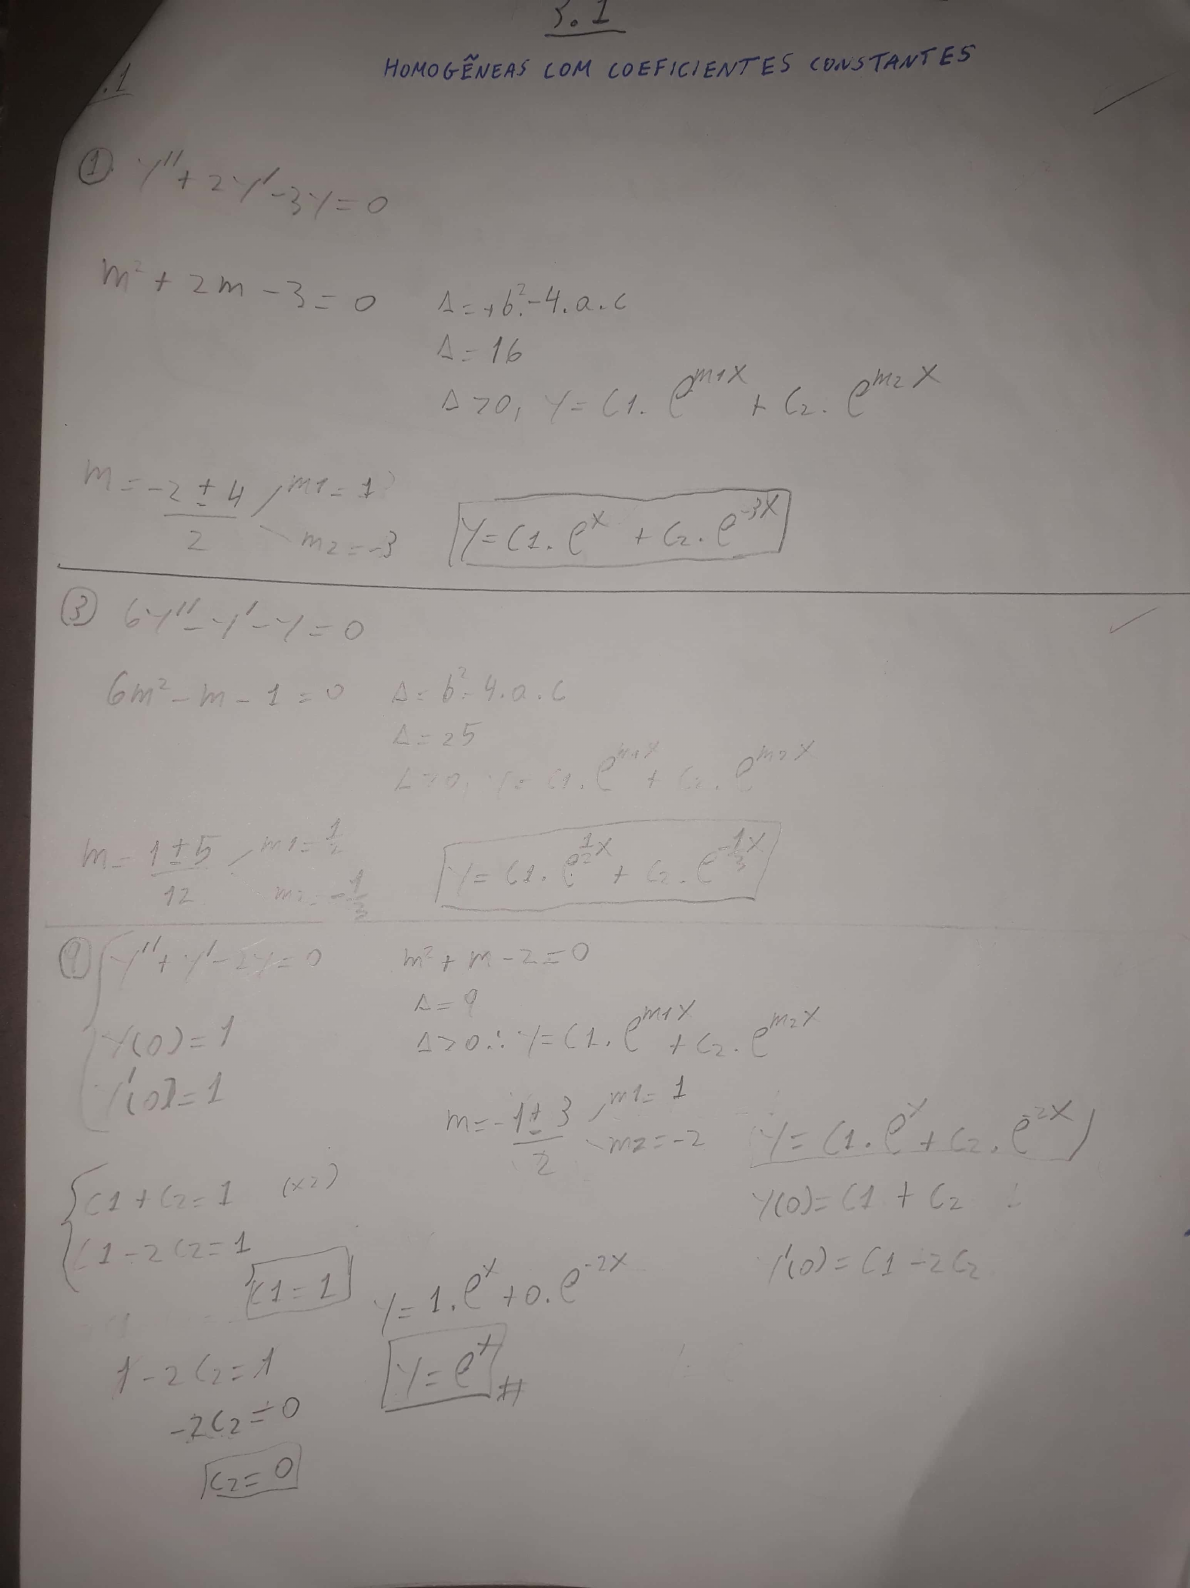 3.1
HOMOGÊNEAS COM COEFICIENTES CONSTANTES
.1
① y'' + 2y' - 3y = 0
m² + 2m - 3 = 0
Δ = +b² - 4.a.c
Δ = 16
Δ > 0, y = C1. e^{m1x} + C2. e^{m2x}
m = (-2 ± 4)/2
m1 = 1
m2 = -3
y = C1. e^x + C2. e^{-3x}
③ 6y'' - y' - y = 0
6m² - m - 1 = 0
Δ = b² - 4.a.c
Δ = 25
Δ > 0, y = C1. e^{m1x} + C2. e^{m2x}
m = (1 ± 5)/12
m1 = 1/2
m2 = -1/3
y = C1. e^{1/2 x} + C2. e^{-1/3 x}
⑨ { y'' + y' - 2y = 0
y(0) = 1
y'(0) = 1
m² + m - 2 = 0
Δ = 9
Δ > 0 ∴ y = C1. e^{m1x} + C2. e^{m2x}
m = (-1 ± 3)/2
m1 = 1
m2 = -2
y = C1. e^x + C2. e^{-2x}
y(0) = C1 + C2
y'(0) = C1 - 2C2
{ C1 + C2 = 1 (x2)
C1 - 2C2 = 1
C1 = 1
1 - 2C2 = 1
-2C2 = 0
C2 = 0
y = 1. e^x + 0. e^{-2x}
y = e^x #